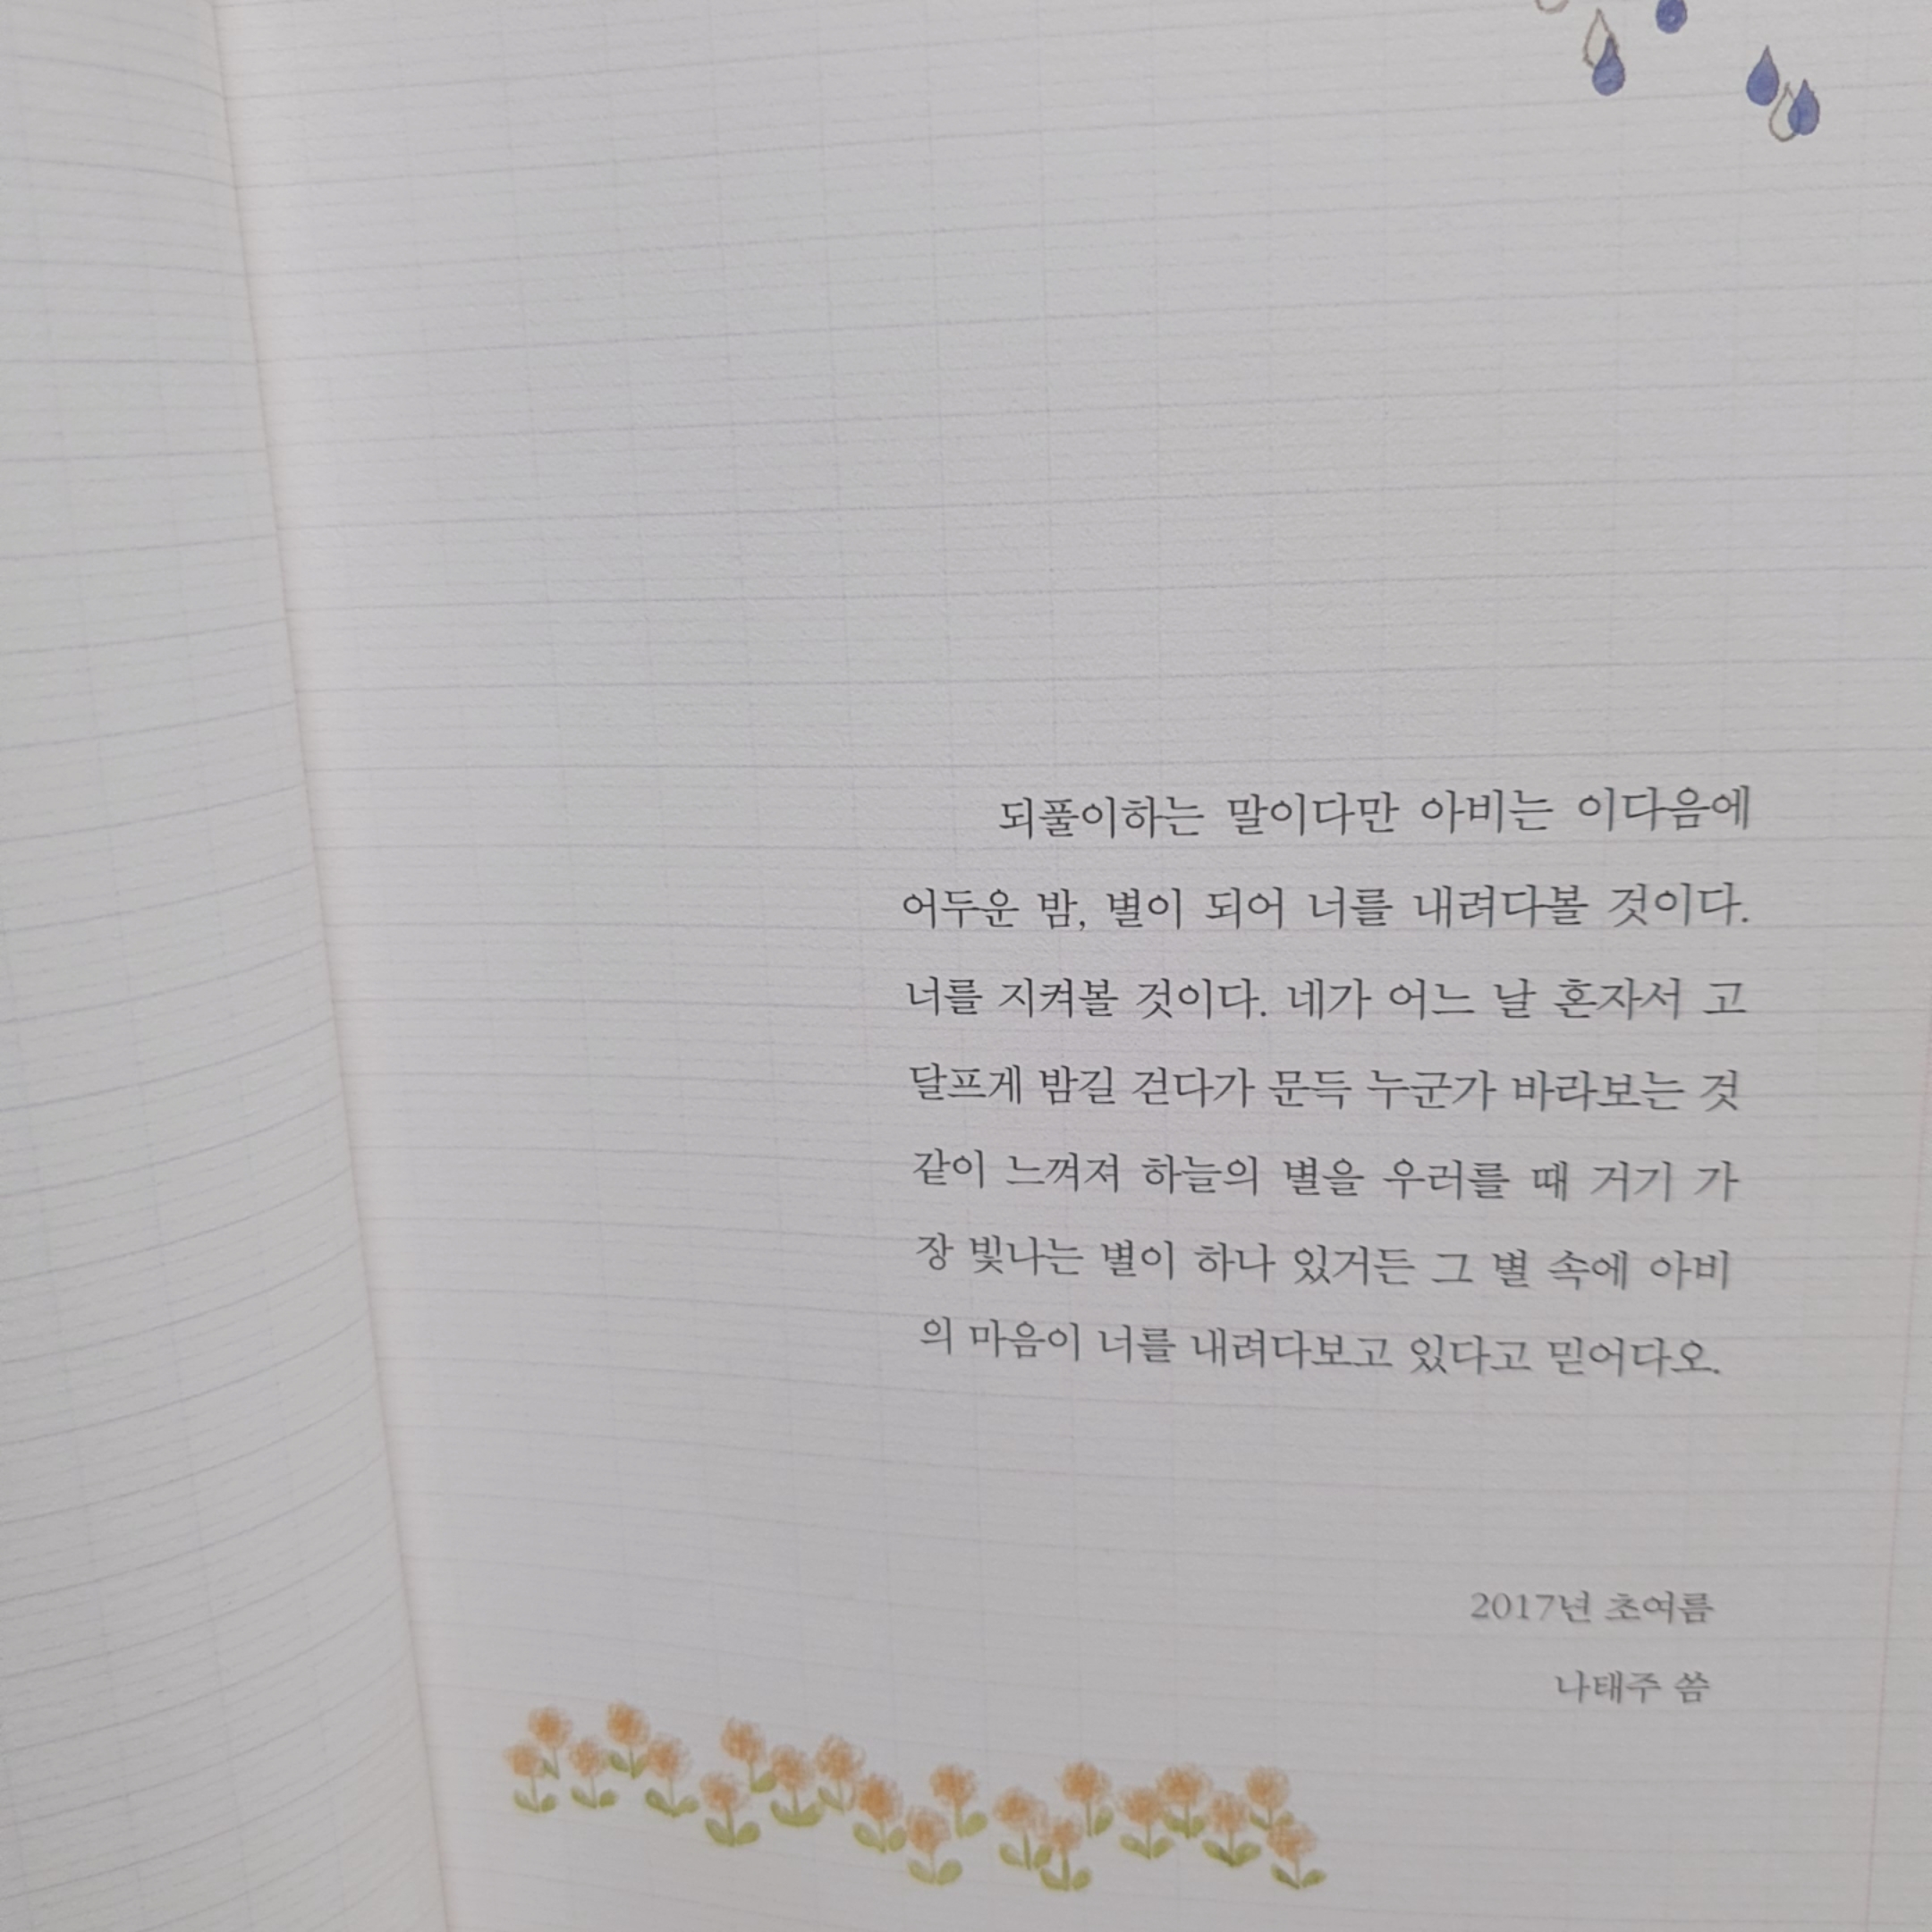 되풀이하는 말이다만 아비는 이다음에
어두운 밤, 별이 되어 너를 내려다볼 것이다.
너를 지켜볼 것이다. 네가 어느 날 혼자서 고
달프게 밤길 걷다가 문득 누군가 바라보는 것
같이 느껴져 하늘의 별을 우러를 때 거기 가
장 빛나는 별이 하나 있거든 그 별 속에 아비
의 마음이 너를 내려다보고 있다고 믿어다오.
2017년 초여름
나태주 씀